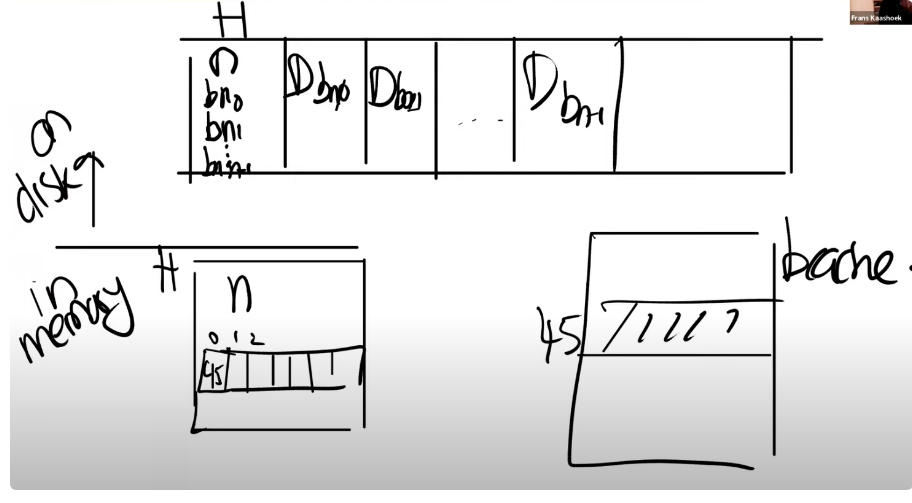 Frans Kaashoek
H
n
bn0
bn1
D bn0
D bn1
....
D bn-1
on
disk
in
memory
H
n
0 1 2
45
45
bcache